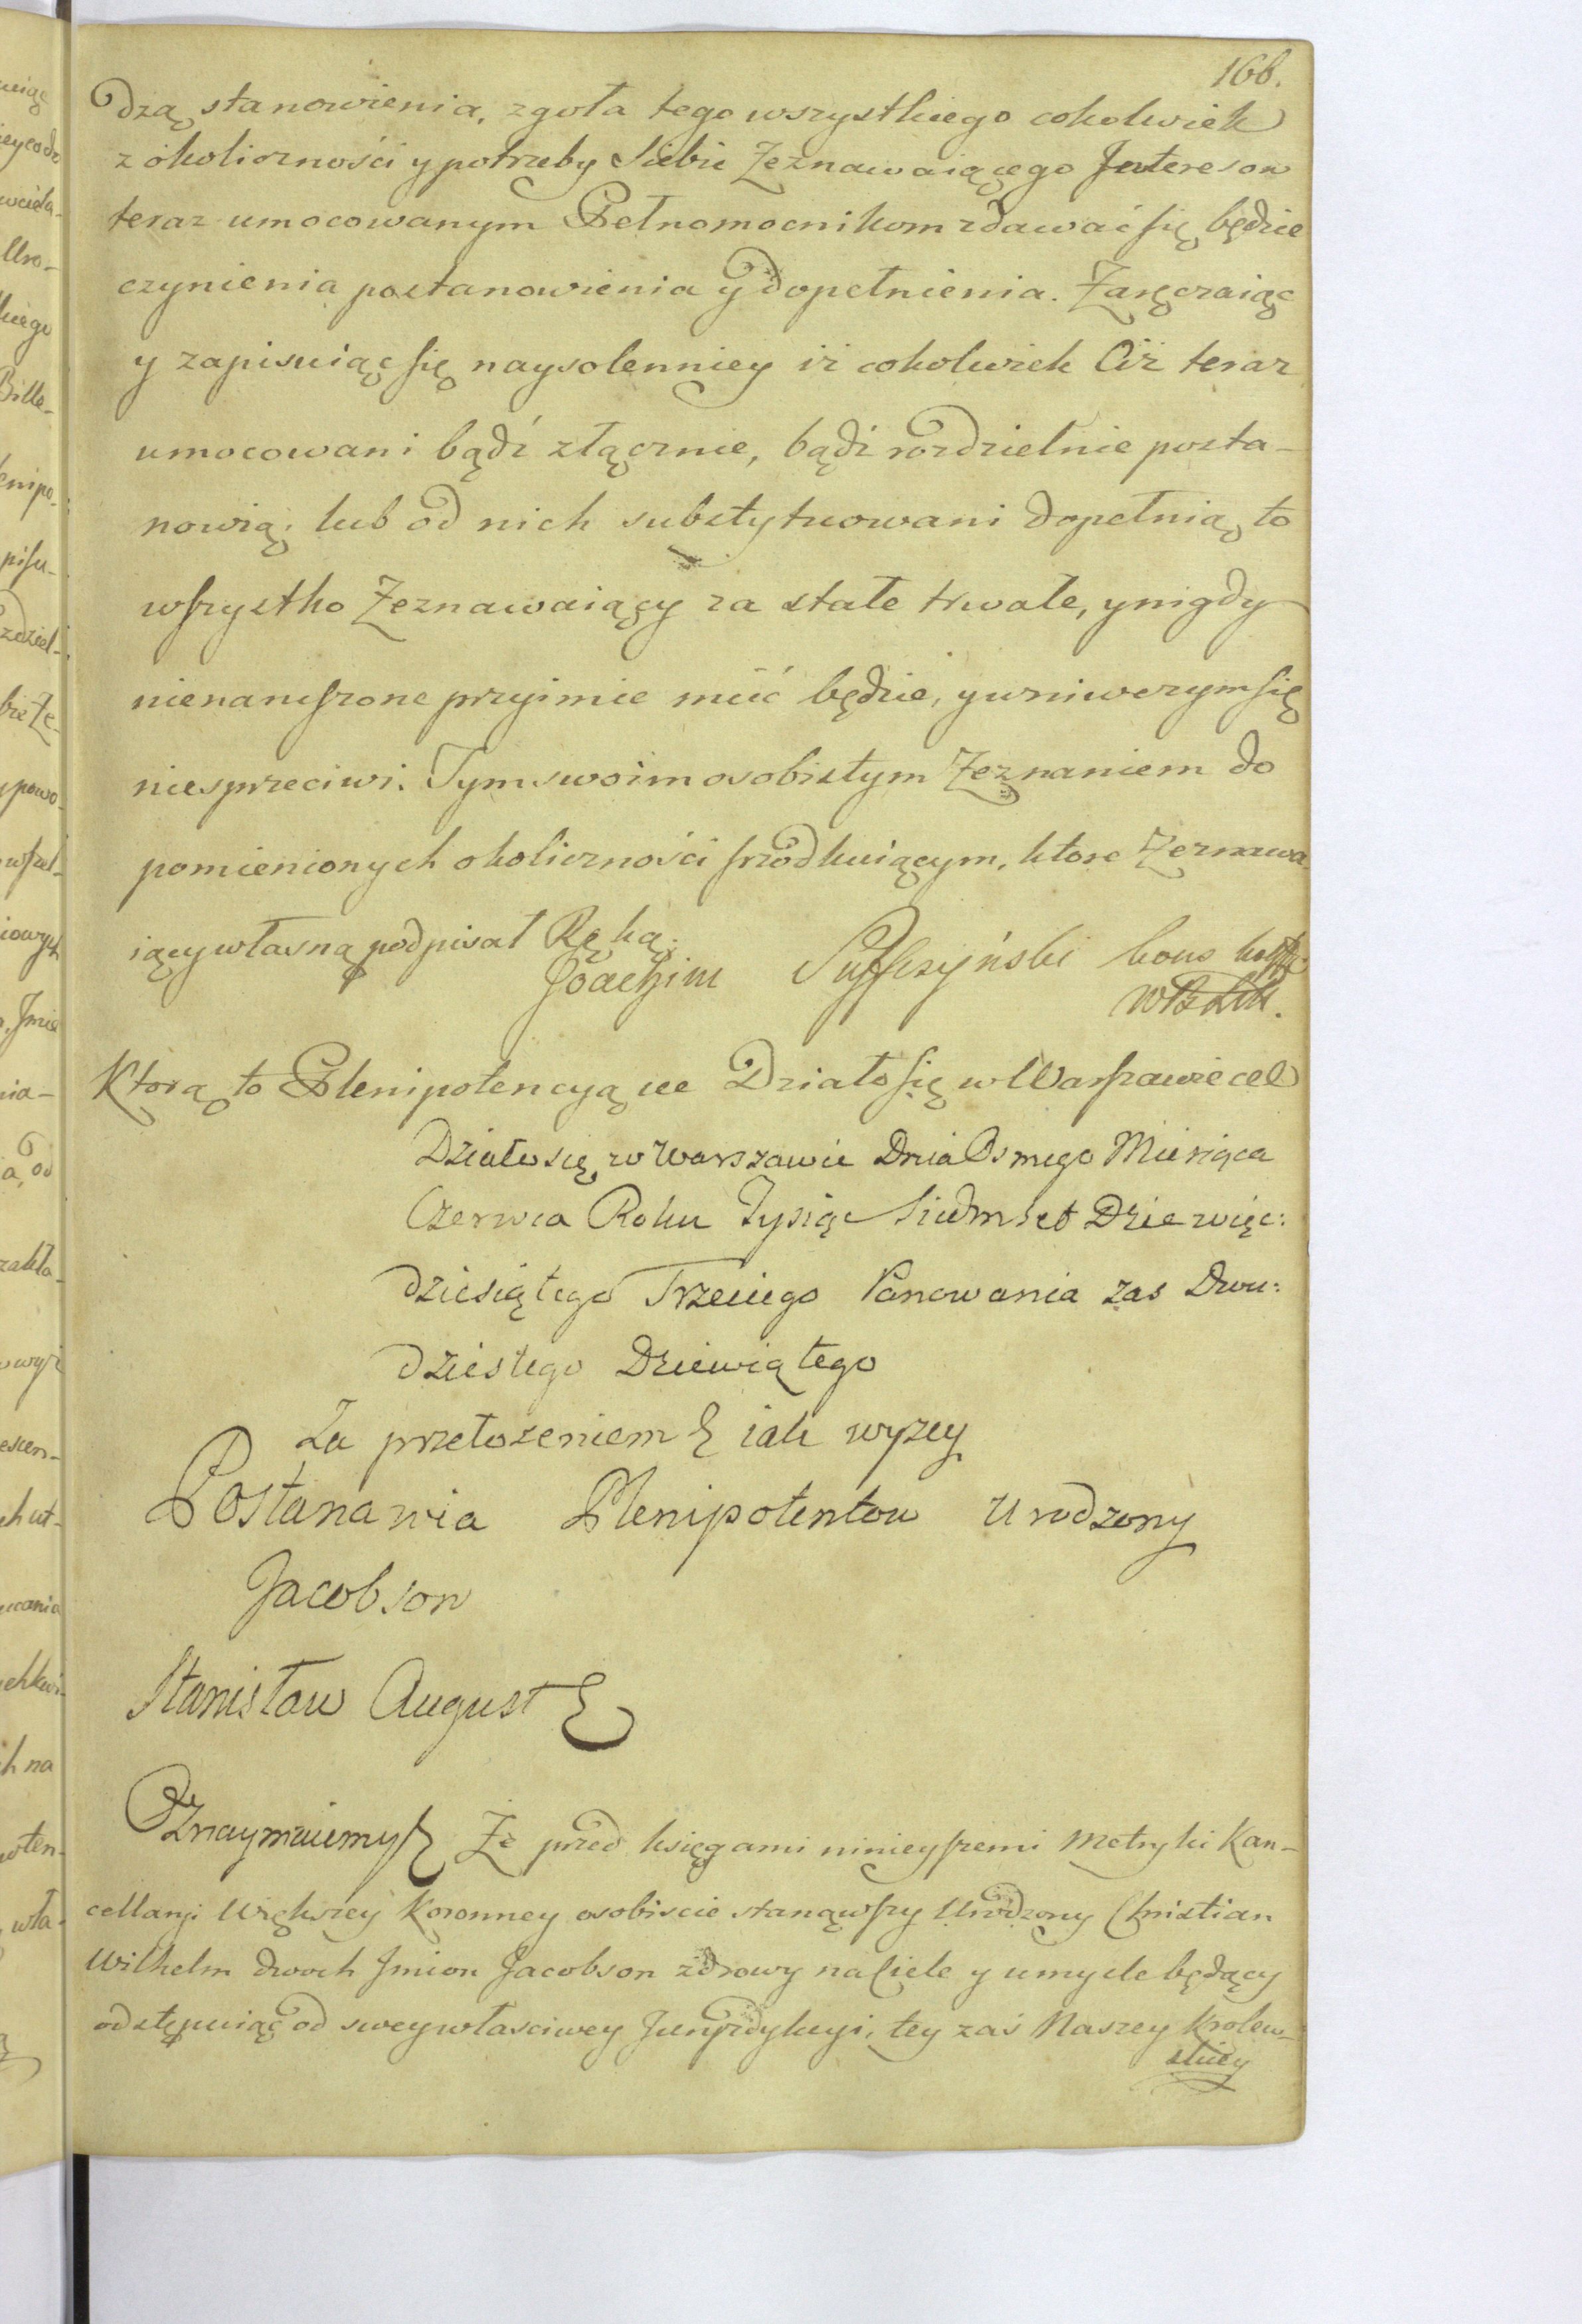 166.
dzą stanowienia, zgoła tego wszystkiego cokolwiek
z okoliczności y potrzeby Siebie Zeznawaiącego Interesow
teraz umocowanym Pełnomocnikom zdawać się będzie
czynienia postanowienia y dopełnienia. Zaręczaiąc
y zapisuiąc się naysolenniey iż cokolwiek Ciż teraz
umocowani bądź złącznie, bądź rozdzielnie posta-
nowią, lub od nich substytuowani dopełnią, to
wszystko Zeznawaiący za stałe trwałe, y nigdy
nienaruszone przyimie mieć będzie, y w niwczym się
niesprzeciwi. Tym swoim osobistym Zeznaniem do
pomienionych okoliczności szrodkuiącym, ktore Zeznawa
iący własną podpisał Ręką.
Joachim Suffczyński
Ktorą to Plenipotencyą etc Działo się w Warszawie cel
Działo się w Warszawie Dnia Osmego Miesiąca
Czerwca Roku Tysiąc Siedmset Dziewięć:
dziesiątego Trzeciego Panowania zas Dwu:
dziestego Dziewiątego
Za przełożeniem & iak wyzey
Postanawia Plenipotentow Urodzony
Jacobson
Stanisław August &
Oznaymuiemy & Że przed księgami ninieyszemi Metryki Kan-
cellaryi Większey Koronney osobiscie stanąwszy Urodzony Christian
Wilhelm dwoch Jmion Jacobson zdrowy na Ciele y umysle będący
odstępuiąc od swey własciwey Juryzdykcyi, tey zaś Naszey Krolew-
skiey
uro-
Bille-
enipo-
pisu-
zdziel-
powo-
iowych
nia-
od
zakła-
h na
oten-
wła-